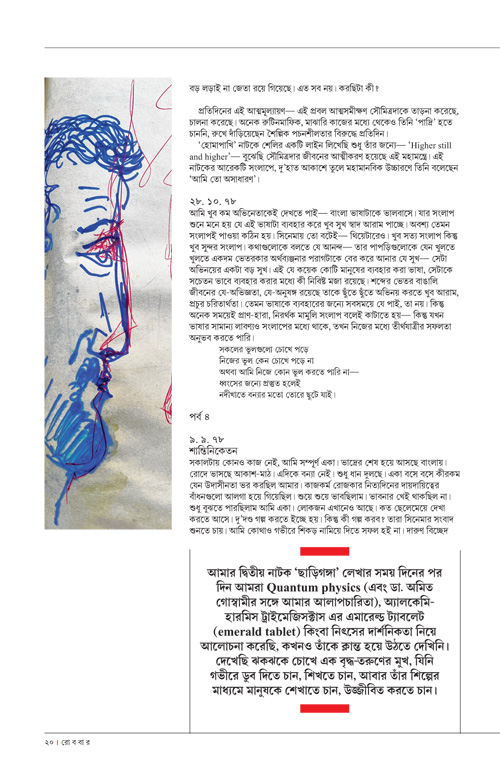 বড় লড়াই না জেতা রয়ে গিয়েছে। এত সব নয়। করছিটা কী?
প্রতিদিনের এই আত্মমূল্যায়ণ— এই প্রবল আত্মসমীক্ষণ সৌমিত্রদাকে তাড়না করেছে,
চালনা করেছে। অনেক রুটিনমাফিক, মাঝারি কাজের মধ্যে থেকেও তিনি ‘পাদ্রি’ হতে
চাননি, রুখে দাঁড়িয়েছেন শৈল্পিক পচনশীলতার বিরুদ্ধে প্রতিদিন।
‘হোমাপাখি’ নাটকে শেলির একটি লাইন লিখেছি শুধু তাঁর জন্যে— ‘Higher still
and higher’— বুঝেছি সৌমিত্রদার জীবনের আত্মীকরণ হয়েছে এই মহামন্ত্রে। এই
নাটকের আরেকটি সংলাপে, দু’হাত আকাশে তুলে মহামানবিক উচ্চারণে তিনি বলেছেন
‘আমি তো অসাধারণ’।
২৮. ১০. ৭৮
আমি খুব কম অভিনেতাকেই দেখতে পাই— বাংলা ভাষাটাকে ভালবাসে। যার সংলাপ
শুনে মনে হয় যে এই ভাষাটা ব্যবহার করে খুব সুখ স্বাদ আরাম পাচ্ছে। অবশ্য তেমন
সংলাপই পাওয়া কঠিন হয়। সিনেমায় তো বটেই— থিয়েটারেও। খুব সত্য সংলাপ কিন্তু
খুব সুন্দর সংলাপ। কথাগুলোকে বলতে যে আনন্দ— তার পাপড়িগুলোকে যেন খুলতে
খুলতে একদম ভেতরকার অর্থব্যঞ্জনার পরাগটাকে বের করে আনার যে সুখ— সেটা
অভিনয়ের একটা বড় সুখ। এই যে কয়েক কোটি মানুষের ব্যবহার করা ভাষা, সেটাকে
সচেতন ভাবে ব্যবহার করার মধ্যে কী নিবিষ্ট মজা রয়েছে। শব্দের ভেতর বাঙালি
জীবনের যে-অভিজ্ঞতা, যে-অনুষঙ্গ রয়েছে তাকে ছুঁতে ছুঁতে অভিনয় করতে খুব আরাম,
প্রচুর চরিতার্থতা। তেমন ভাষাকে ব্যবহারের জন্যে সবসময়ে যে পাই, তা নয়। কিন্তু
অনেক সময়েই প্রাণ-হারা, নিরর্থক মামুলি সংলাপ বলেই কাটাতে হয়— কিন্তু যখন
ভাষার সামান্য লাবণ্যও সংলাপের মধ্যে থাকে, তখন নিজের মধ্যে তীর্থযাত্রীর সফলতা
অনুভব করতে পারি।
সকলের ভুলগুলো চোখে পড়ে
নিজের ভুল কেন চোখে পড়ে না
অথবা আমি নিজে কোন ভুল করতে পারি না—
ধ্বংসের জন্যে প্রস্তুত হলেই
নদীখাতে বন্যার মতো তোরে ছুটে যাই।
পর্ব ৪
৯. ৯. ৭৮
শান্তিনিকেতন
সকালটায় কোনও কাজ নেই, আমি সম্পূর্ণ একা। ভাদ্রের শেষ হয়ে আসছে বাংলায়।
রোদে ভাসছে আকাশ-মাঠ। এদিকে বন্যা নেই। শুধু ধান দুলছে। একা বসে বসে কীরকম
যেন উদাসীনতা ভর করছিল আমার। কাজকর্ম রোজকার নিত্যদিনের দায়দায়িত্বের
বাঁধনগুলো আলগা হয়ে গিয়েছিল। শুয়ে শুয়ে ভাবছিলাম। ভাবনার খেই থাকছিল না।
শুধু বুঝতে পারছিলাম আমি একা। লোকজন এখানেও আছে। কত ছেলেমেয়ে দেখা
করতে আসে। দু’দণ্ড গল্প করতে ইচ্ছে হয়। কিন্তু কী গল্প করব? তারা সিনেমার সংবাদ
শুনতে চায়। আমি কোথাও গভীরে শিকড় নামিয়ে দিতে সফল হই না। দারুণ বিচ্ছেদ
আমার দ্বিতীয় নাটক ‘ছাড়িগঙ্গা’ লেখার সময় দিনের পর
দিন আমরা Quantum physics (এবং ডা. অমিত
গোস্বামীর সঙ্গে আমার আলাপচারিতা), অ্যালকেমি-
হারমিস ট্রাইমেজিসক্টাস এর এমারেল্ড ট্যাবলেট
(emerald tablet) কিংবা নিৎসের দার্শনিকতা নিয়ে
আলোচনা করেছি, কখনও তাঁকে ক্লান্ত হয়ে উঠতে দেখিনি।
দেখেছি ঝকঝকে চোখে এক বৃদ্ধ-তরুণের মুখ, যিনি
গভীরে ডুব দিতে চান, শিখতে চান, আবার তাঁর শিল্পের
মাধ্যমে মানুষকে শেখাতে চান, উজ্জীবিত করতে চান।
২০ । রো ব বা র